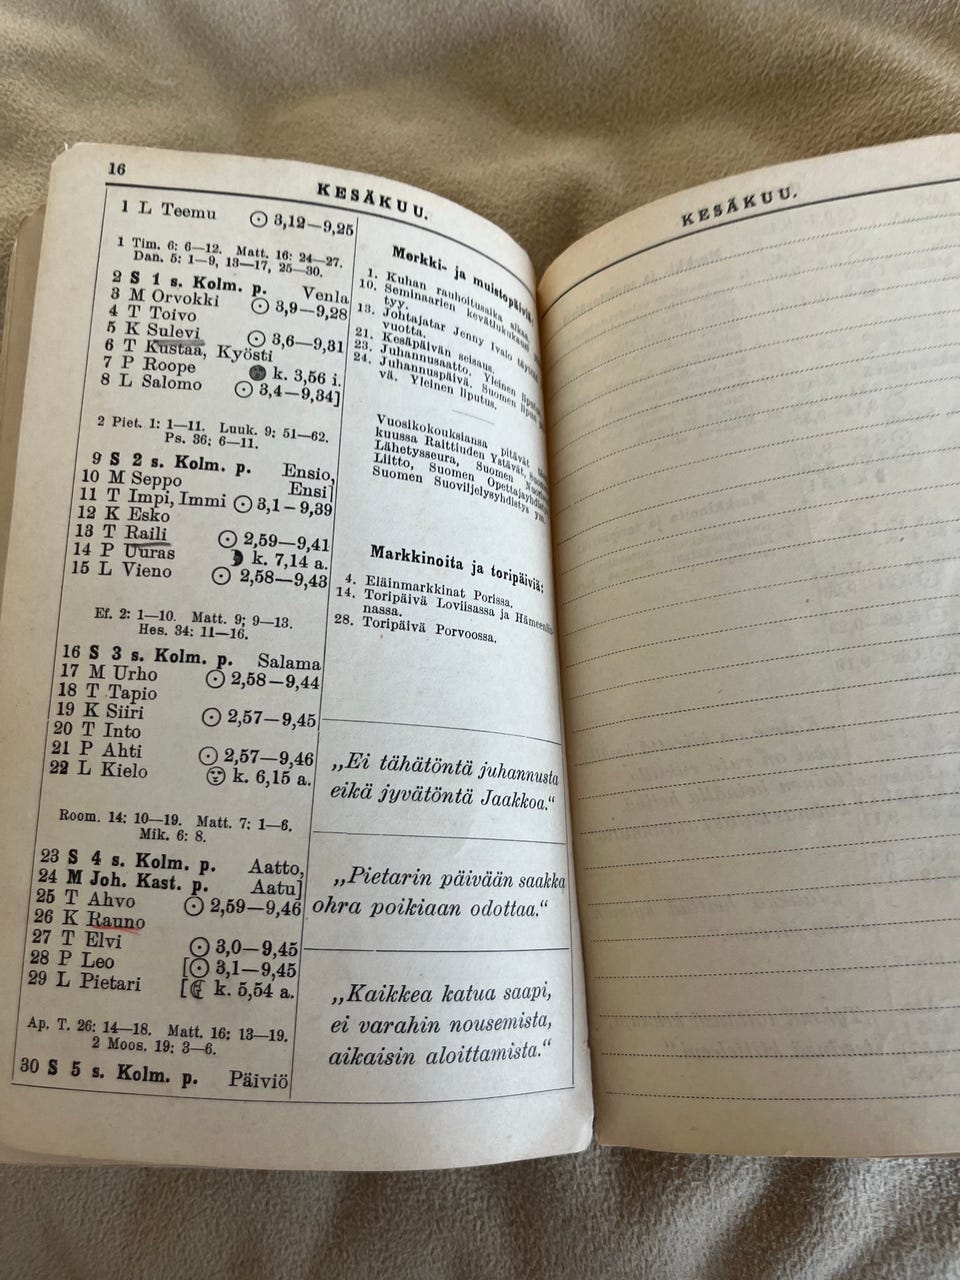 16
KESÄKUU.
1 L Teemu ☉ 3,12—9,25
1 Tim. 6: 6—12. Matt. 16: 24—27.
Dan. 5: 1—9, 13—17, 25—30.
2 S 1 s. Kolm. p. Venla
3 M Orvokki ☉ 3,9—9,28
4 T Toivo
5 K Sulevi ☉ 3,6—9,31
6 T Kustaa, Kyösti
7 P Roope k. 3,56 i.
8 L Salomo ☉ 3,4—9,34]
2 Piet. 1: 1—11. Luuk. 9: 51—62.
Ps. 36: 6—11.
9 S 2 s. Kolm. p. Ensio,
10 M Seppo Ensi]
11 T Impi, Immi ☉ 3,1—9,39
12 K Esko
13 T Raili ☉ 2,59—9,41
14 P Uuras k. 7,14 a.
15 L Vieno ☉ 2,58—9,43
Ef. 2: 1—10. Matt. 9; 9—13.
Hes. 34: 11—16.
16 S 3 s. Kolm. p. Salama
17 M Urho ☉ 2,58—9,44
18 T Tapio
19 K Siiri ☉ 2,57—9,45
20 T Into
21 P Ahti ☉ 2,57—9,46
22 L Kielo k. 6,15 a.
Room. 14: 10—19. Matt. 7: 1—6.
Mik. 6: 8.
23 S 4 s. Kolm. p. Aatto,
24 M Joh. Kast. p. Aatu]
25 T Ahvo ☉ 2,59—9,46
26 K Rauno
27 T Elvi ☉ 3,0—9,45
28 P Leo [☉ 3,1—9,45
29 L Pietari [☾ k. 5,54 a.
Ap. T. 26: 14—18. Matt. 16; 13—19.
2 Moos. 19: 3—6.
30 S 5 s. Kolm. p. Päiviö
Merkki- ja muistopäiviä:
1. Kuhan rauhoitusaika alkaa.
10. Seminaarien kevätlukukausi
tyy.
13. Johtajatar Jenny Ivalo täyttää
vuotta.
21. Kesäpäivän seisaus.
23. Juhannusaatto. Yleinen liputus.
24. Juhannuspäivä. Suomen lipun
vä. Yleinen liputus.
Vuosikokouksiansa pitävät
kuussa Raittiuden Ystävät,
Lähetysseura, Suomen
Liitto, Suomen Opettajayhdistys
Suomen Suoviljelysyhdistys ym.
Markkinoita ja toripäiviä:
4. Eläinmarkkinat Porissa.
14. Toripäivä Loviisassa ja Hämeenlin-
nassa.
28. Toripäivä Porvoossa.
„Ei tähätöntä juhannusta
eikä jyvätöntä Jaakkoa.“
„Pietarin päivään saakka
ohra poikiaan odottaa.“
„Kaikkea katua saapi,
ei varahin nousemista,
aikaisin aloittamista.“
KESÄKUU.